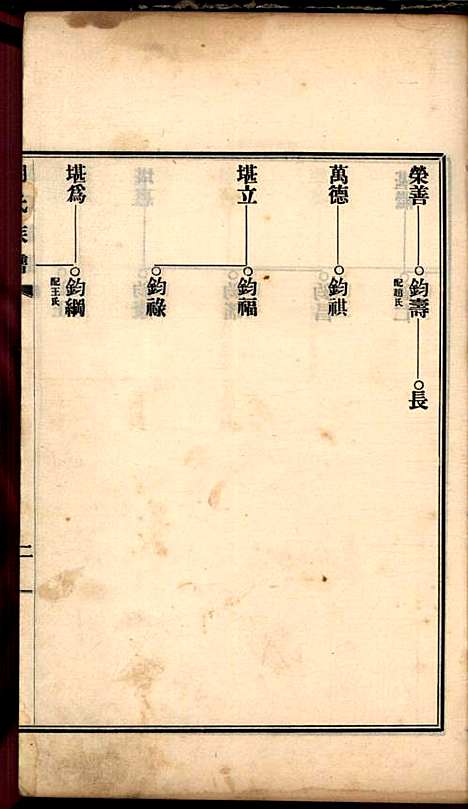 榮善
鈞壽
配趙氏
長
萬德
鈞祺
堪立
鈞福
鈞祿
堪爲
鈞綱
配王氏
氏族譜
二一